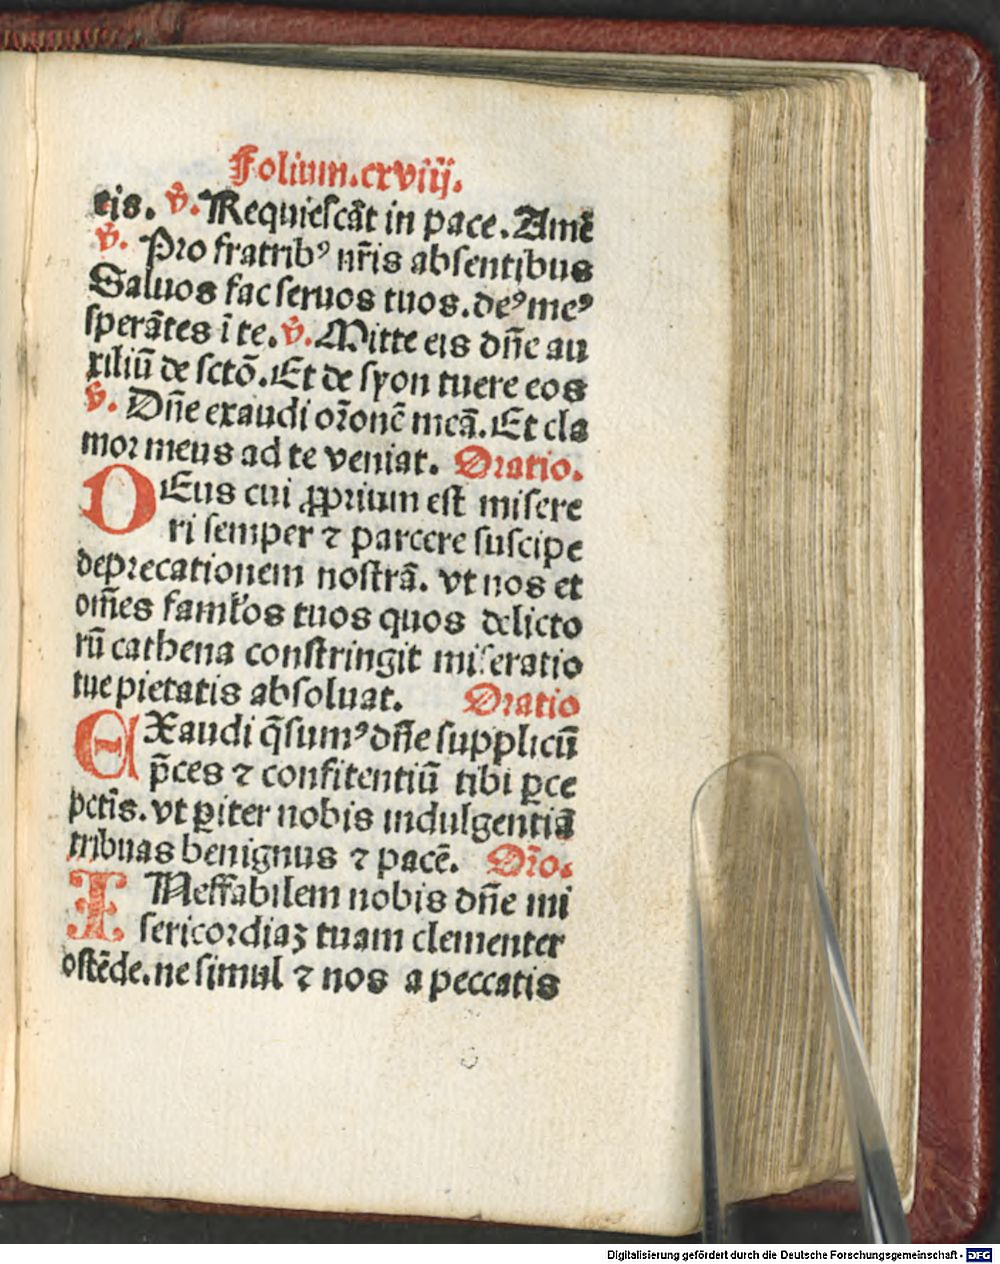 Folium.cxviij.
eis. v̄. Requiescāt in pace. Amē
v̄. Pro fratribꝰ nr̄is absentibus
Saluos fac seruos tuos. deꝰ meꝰ
sperātes ī te. v̄. Mitte eis dn̄e au
xiliū de sctō. Et de syon tuere eos
v̄. Dn̄e exaudi or̄onē meā. Et cla
mor meus ad te veniat. Oratio.
DEus cui ꝓprium est misere
ri semper ⁊ parcere suscipe
deprecationem nostrā. vt nos et
om̄es famĺos tuos quos delicto
rū cathena constringit miseratio
tue pietatis absoluat. Oratio
EXaudi q̄sumꝰ dn̄e supplicū
p̄ces ⁊ confitentiū tibi ꝑce
pctīs. vt ꝑiter nobis indulgentiā
tribuas benignus ⁊ pacē. Or̄o.
INeffabilem nobis dn̄e mi
sericordiaꝫ tuam clementer
ostēde. ne simul ⁊ nos a peccatis
Digitalisierung gefördert durch die Deutsche Forschungsgemeinschaft - DFG